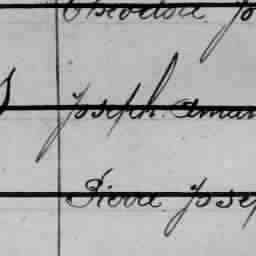 Théodore Jo
Joseph Aman
Pierre Josep